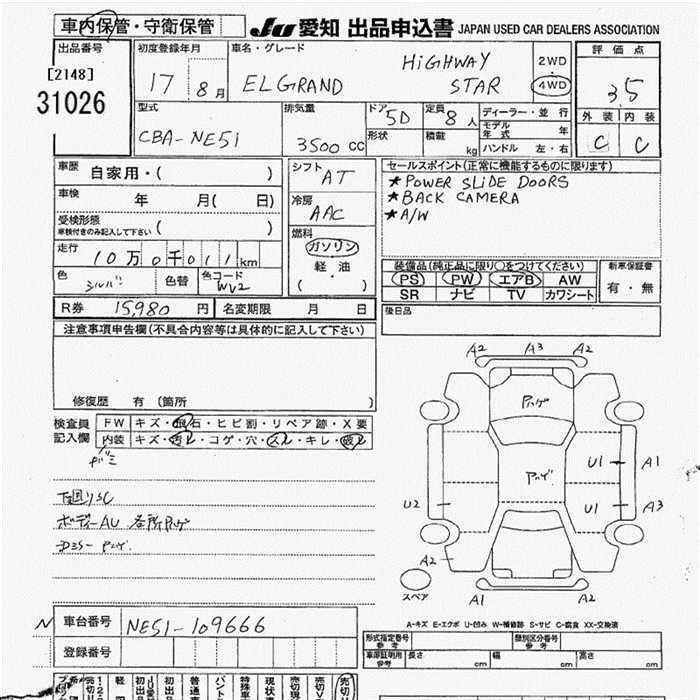 車内保管・守衛保管 JU 愛知 出品申込書 JAPAN USED CAR DEALERS ASSOCIATION
出品番号
[2148]
31026
初度登録年月
17 8月
車名・グレード
ELGRAND HiGHWAY STAR
2WD
4WD
評価点
3.5
外装 内装
C C
型式
CBA-NE51
排気量
3500 CC
ドア 5D
形状
定員 8人
積載 kg
ディーラー・並行
モデル年式 年
ハンドル 左・右
車歴 自家用・( )
車検 年 月( 日)
受検形態
車検付きのみ記入して下さい ( )
走行 10万0千011km
色 シルバー 色替 色コード WV2
シフト AT
冷房 AAC
燃料
ガソリン
軽油
( )
セールスポイント(正常に機能するものに限ります)
★POWER SLiDE DOORS
★BACK CAMERA
★A/W
装備品(純正品に限り○をつけてください) 新車保証書
PS PW エアB AW 有・無
SR ナビ TV カワシート
R券 15,980円 名変期限 月 日
後日品
注意事項申告欄(不具合内容等は具体的に記入して下さい)
修復歴 有 (箇所 )
検査員記入欄
FW キズ・飛石・ヒビ割・リペア跡・X要
内装 キズ・汚れ・コゲ・穴・スレ・キレ・破レ
下廻りSC
ボディーAU 各所ハゲ
A2 A3 A2
ハゲ
ハゲ
U1 A1
U2 U1 A3
A2
スペア
A1 A2
A-キズ E-エクボ U-凹み W-補修跡 S-サビ C-腐食 XX-交換済
車台番号 NE51-109666
登録番号
形式指定番号 参考 類別区分番号 参考
車庫証明用 参考 長さ cm 幅 cm 高さ cm